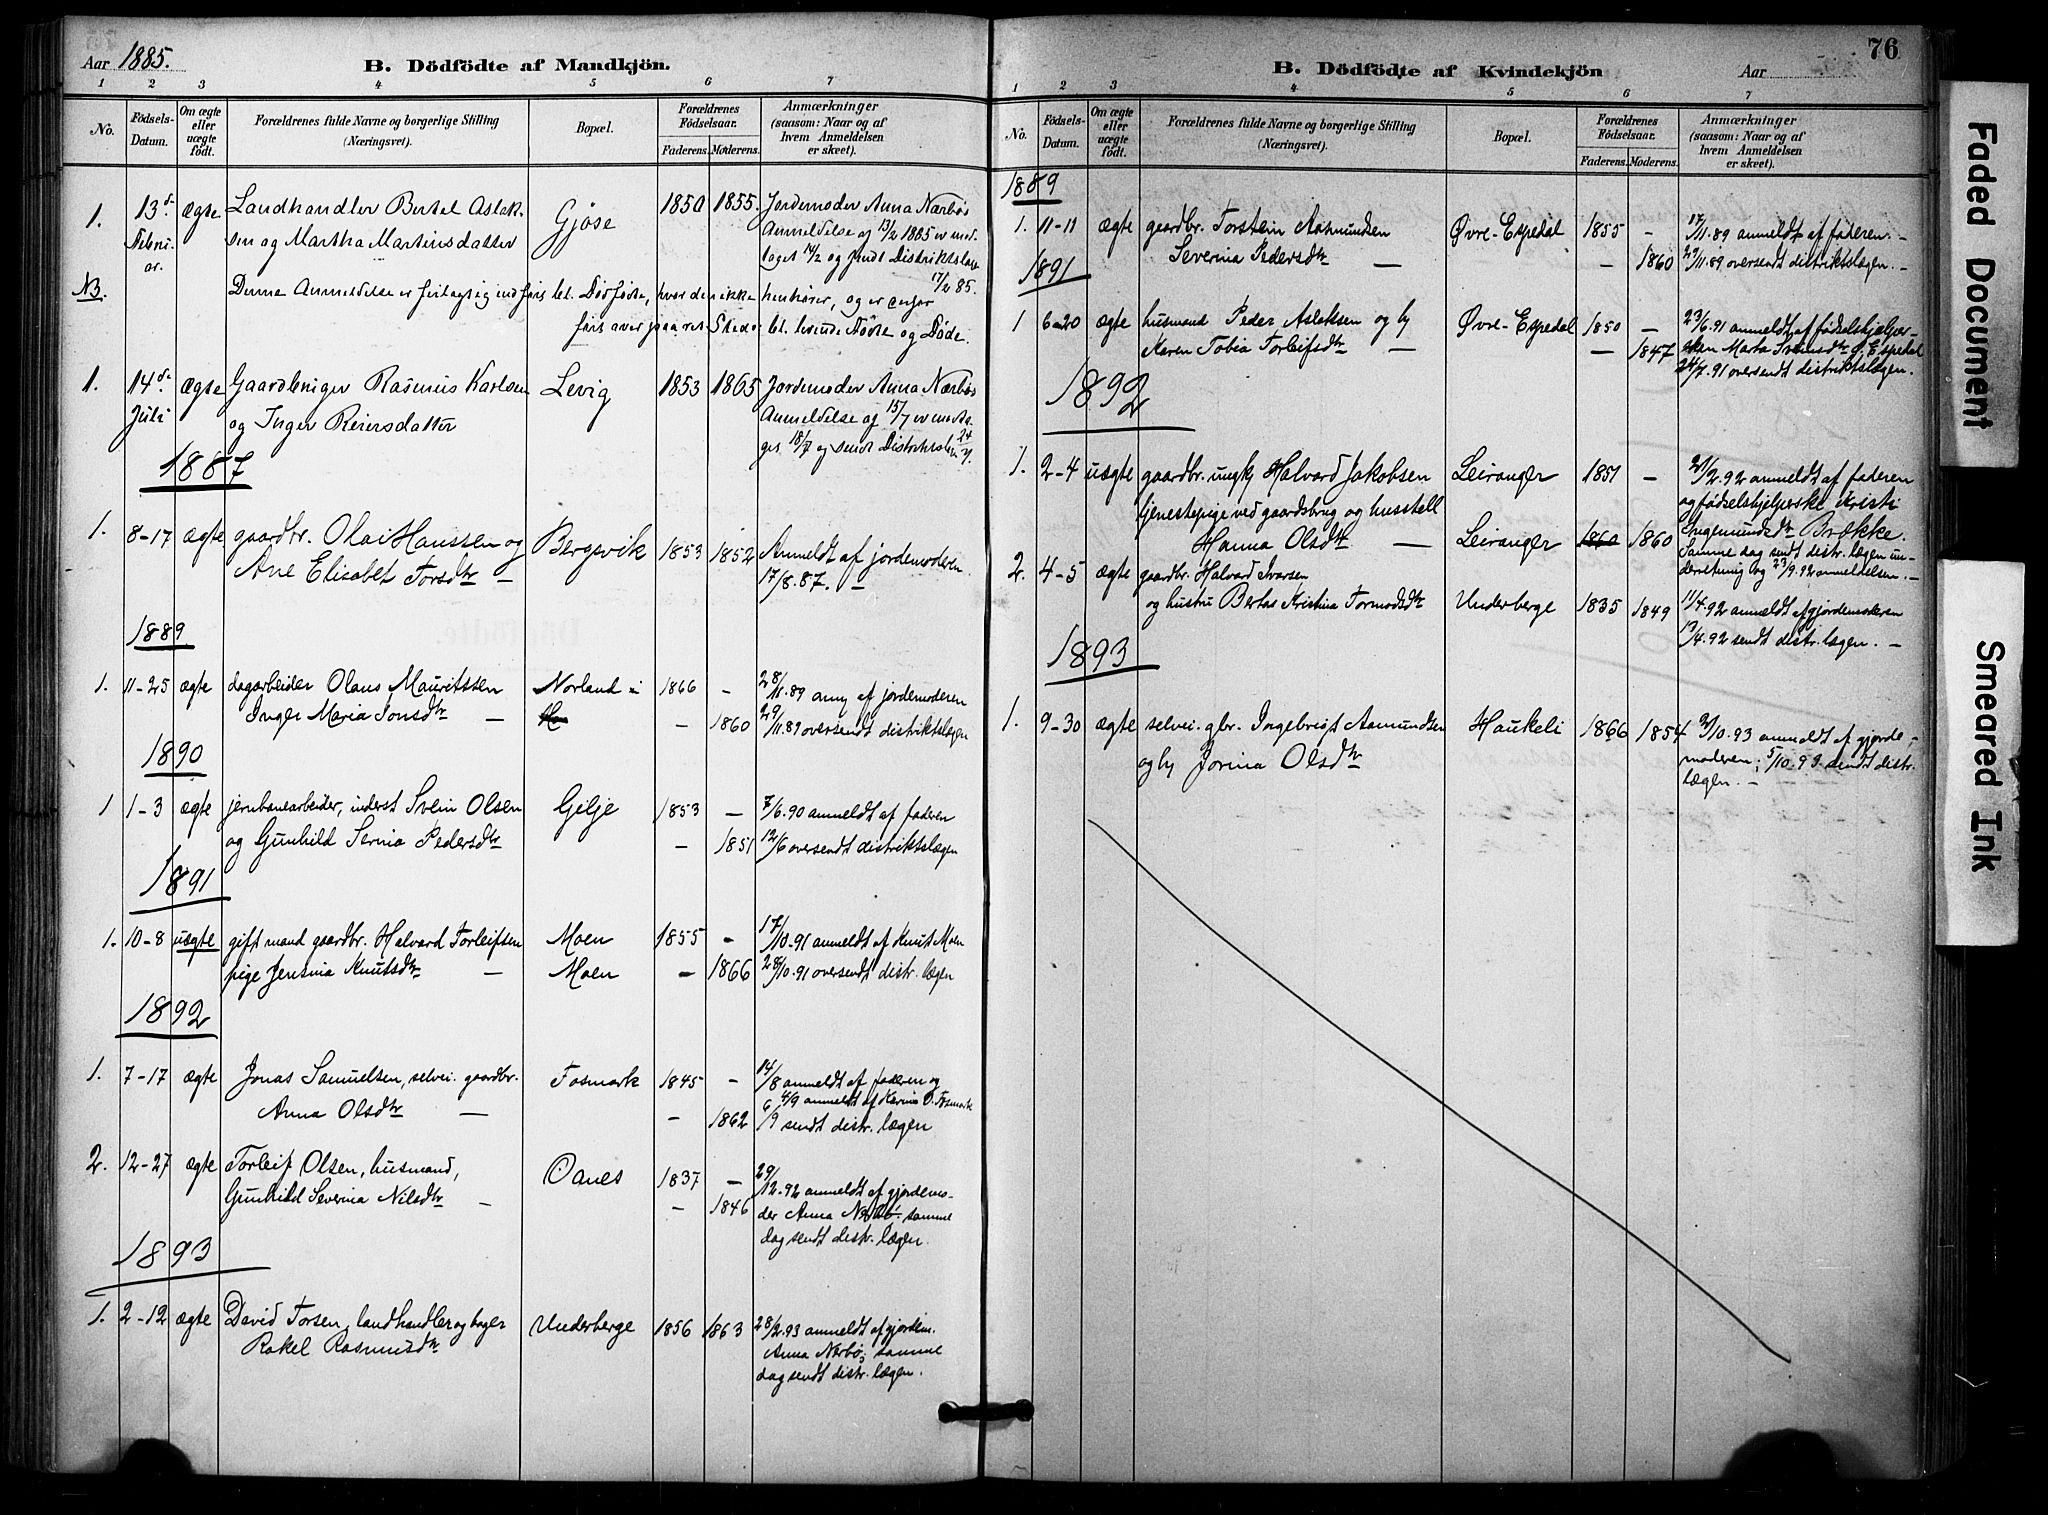 Aar 1885.
B. Dödfödte af Mandkjön.
1 2 3 4 5 6 7
No.
Födsels-Datum.
Om ægte eller uægte födt.
Forældrenes fulde Navne og borgerlige Stilling (Næringsvei).
Bopæl.
Forældrenes Födselsaar.
Faderens. Moderens.
Anmærkninger (saasom: Naar og af hvem Anmeldelsen er skeet).
1. 13de Februar. ægte Landhandler Bertel Aslaksen og Martha Martinsdatter Gjøse 1850 1855. Jordemoder Anna Nærbøs
Anmeldelse af 13/2 1885 er modtaget 14/2 og sendt Distriktslæ 17/2 85.
NB. Denne Anmeldelse er feilagtig indført bl. Dødfødte, hvor den ikke henhører, og er
bl. levende Fødte og Døde.
1. 14de Juli ægte Gaardbruger Rasmus Karlsen Levig 1853 1865 Jordemoder Anna Nærbøs
og Inger Reiersdatter Anmeldelse af 15/7 er modta-
get 18/7 og sendt Distriktslæ 24/7.
1887
1. 8-17 ægte gaardbr. Olai Hanssen og Bergsvik 1853 1852 Anmeldt af jordemoderen
Ane Elisabet Torsdtr – 17/8.87. –
1889
1. 11-25 ægte dagarbeider Olaus Mauritssen Norland 1866 – 28/11.89 anm af jordemoderen
Inger Maria Jonsdtr – – 1860 29/11.89 oversendt distriktslægen
1890
1 1-3 ægte jernbanearbeider, inderst Svein Olsen Gilje 1853 – 7/6.90 anmeldt af faderen
og Gunhild Serina Pedersdtr – 1851 12/6 oversendt distriktslægen
1891
1. 10-8 uægte gift mand gaardbr. Halvard Torleifsen Moen 1855 – 17/10.91 anmeldt af Knut Moen
pige Jensina Knutsdtr – Moen – 1866 28/10.91 oversendt distr. lægen
1892
1. 7-17 ægte Jonas Samuelsen, selvei. gaardbr. Fosmark 1845 – 14/8 anmeldt af faderen og
Anna Olsdtr – – 1862 4/9 anmeldt af Karina O. Fosmark
6/9 sendt distr. lægen
2. 12-27 ægte Torleif Olsen, husmand, Oanes 1837 – 29/12.92 anmeldt af gjordemo-
Gunhild Severina Nilsdtr – – 1846 der Anna Nærbø. samme
dag sendt distr. lægen.
1893
1. 2-12 ægte David Torsen, landhandler og bager Underberge 1856 1863 28/2.93 anmeldt af gjordem.
Rakel Rasmusdtr Anna Nærbø; samme
dag sendt distr. lægen.
76
B. Dödfödte af Kvindekjön
Aar
1 2 3 4 5 6 7
No.
Födsels-Datum.
Om ægte eller uægte födt.
Forældrenes fulde Navne og borgerlige Stilling (Næringsvei).
Bopæl.
Forældrenes Födselsaar.
Faderens. Moderens.
Anmærkninger (saasom: Naar og af hvem Anmeldelsen er skeet).
1889
1. 11-11 ægte gaardbr. Torstein Aasmundsen Øvre-Espedal 1855 – 17/11.89 anmeldt af faderen. –
Severina Pedersdtr – – 1860 29/11.89 oversendt distriktslægen. –
1891
1 6-20 ægte husmand Peder Aslaksen og h Øvre-Espedal 1850 – 23/6.91 anmeldt af fødselshjælper-
Karen Tobia Torleifsdtr – – 1847 sken Marta Sveinsdtr Ø. Espedal
24/7.91 oversendt distriktslægen.
1892
1. 2-4 uægte gaardbr. ungk Halvard Jakobsen Leiranger 1851 – 21/2.92 anmeldt af faderen
tjenestepige ved gaardsbrug og husstell og fødselshjelperske Kristi
Hanna Olsdtr – Leiranger 1860 1860 Ingemundsdtr Brække.
Samme dag sendt distr. lægen un-
derretning og 23/9.92 anmeldelsen. –
2. 4-5 ægte gaardbr. Halvard Ivarsen
og hustru Berta Kristina Tormodsdtr Underberge 1835 1849 11/4.92 anmeldt af gjordemoderen
13/4.92 sendt distr. lægen. –
1893
1. 9-30 ægte selvei. gbr. Ingebrigt Aamundsen Haukeli 1866 1854 2/10.93 anmeldt af gjorde-
og h Jorina Olsdtr moderen; 5/10.93 sendt distr.
lægen. –
Faded Document
Smeared Ink